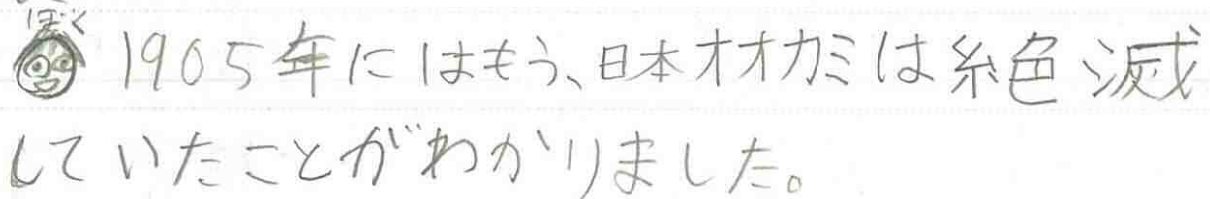 ぼく
1905年にはもう、日本オオカミは絶滅
していたことがわかりました。